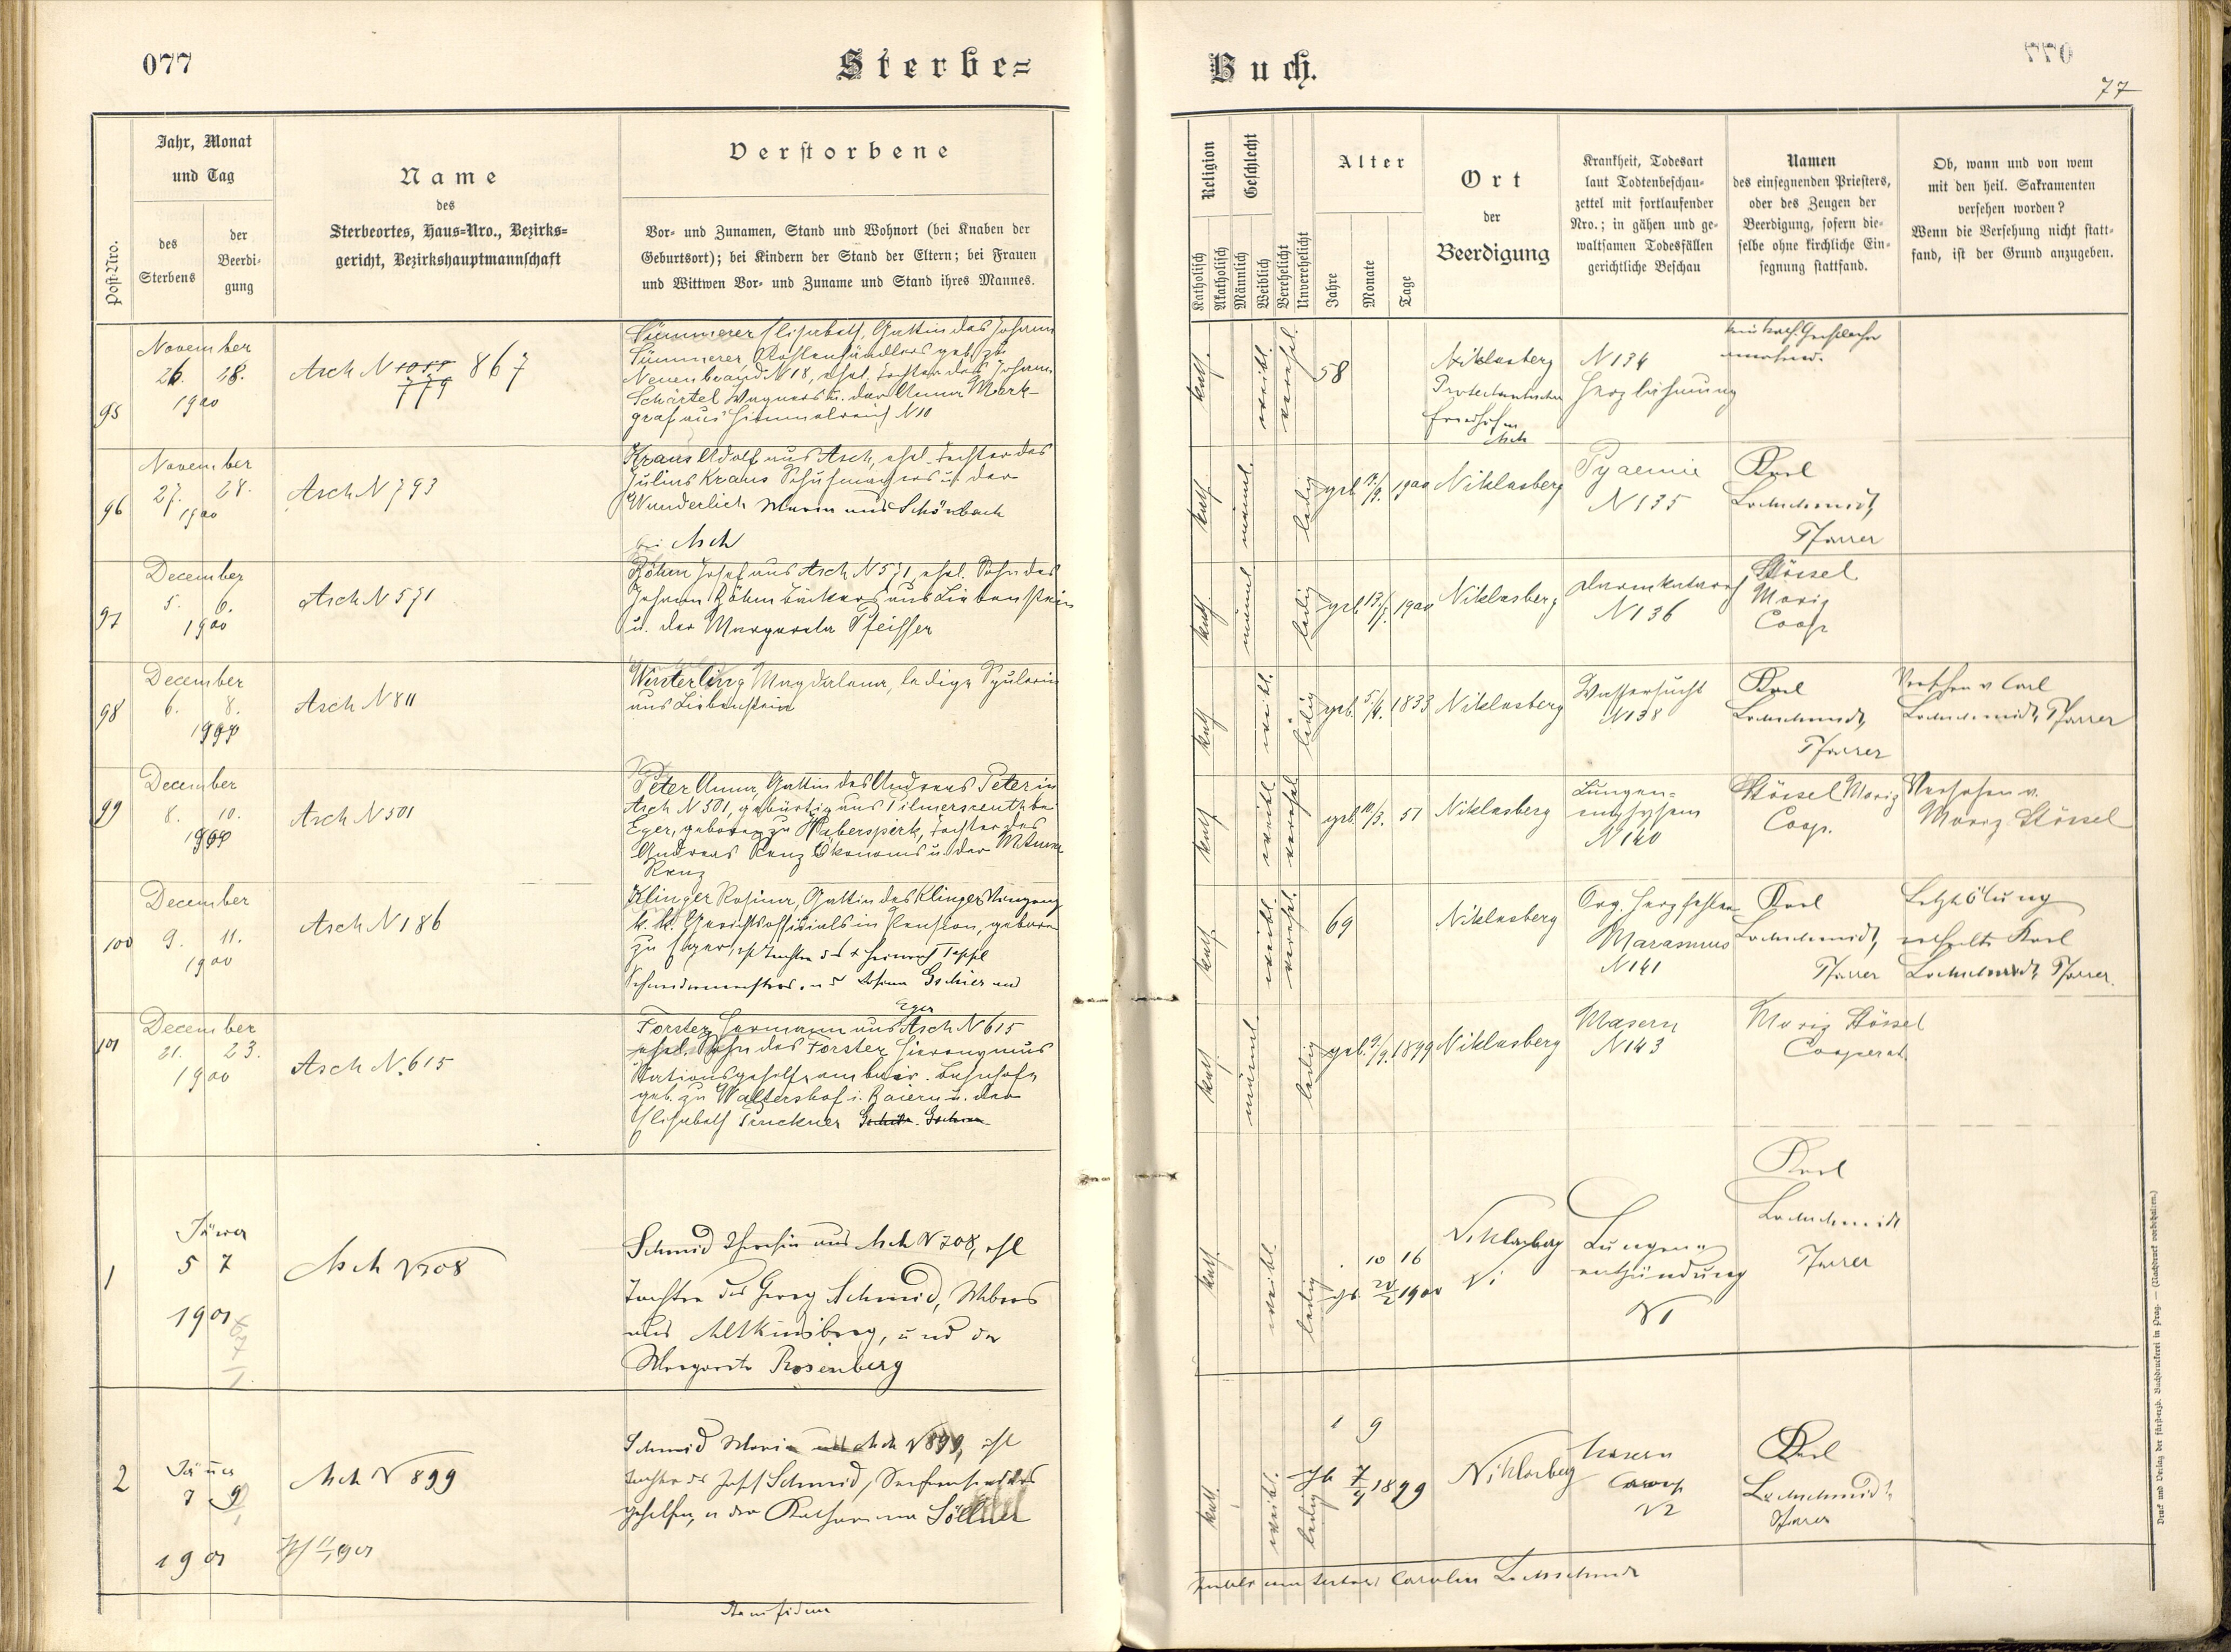 077
Sterbe=
Buch.
77
Post-Nro.
Jahr, Monat
und Tag
des
Sterbens
der
Beerdi-
gung
Name
des
Sterbeortes, Haus-Nro., Bezirks-
gericht, Bezirkshauptmannschaft
Verstorbene
Vor- und Zunamen, Stand und Wohnort (bei Knaben der
Geburtsort); bei Kindern der Stand der Eltern; bei Frauen
und Wittwen Vor- und Zuname und Stand ihres Mannes.
Religion
Katholisch
Akatholisch
Geschlecht
Männlich
Weiblich
Verehelicht
Unverehelicht
Alter
Jahre
Monate
Tage
Ort
der
Beerdigung
Krankheit, Todesart
laut Todtenbeschau-
zettel mit fortlaufender
Nro.; in gähen und ge-
waltsamen Todesfällen
gerichtliche Beschau
Namen
des einsegnenden Priesters,
oder des Zeugen der
Beerdigung, sofern die-
selbe ohne kirchliche Ein-
segnung stattfand.
Ob, wann und von wem
mit den heil. Sakramenten
versehen worden?
Wenn die Versehung nicht statt-
fand, ist der Grund anzugeben.
95
November
26. 28.
1900
Asch N 867
779
Sümmerer Elisabeth, Gattin des Johann
Sümmerer, Kohlenhändlers geb. zu
Neuenbrand N 18, ehel. Tochter des Johann
Schärtel Wagners u. der Anna Mark-
graf aus Himmelreich N 10
kath.
weibl.
verehel.
58
Niklasberg
Protestantischer
Friedhof in
Asch
N 134
Herzlähmung
96
November
27. 28.
1900
Asch N 793
Kraus Adolf aus Asch, ehel. Tochter des
Julius Kraus Schuhmachers u. der
Wunderlich Maria aus Schönbach
bei Asch
kath.
männl.
ledig
geb. 1900
Niklasberg
Pyaemie
N 135
Karl
Lochschmidt,
Pfarrer
97
December
5. 6.
1900
Asch N 571
Böhm Josef aus Asch N 571, ehel. Sohn des
Johann Böhm Bäckers aus Liebenstein
u. der Margareta Pfeiffer
kath.
männl.
ledig
geb. 1900
Niklasberg
Darmkatarrh
N 136
Stössel
Moriz
Coop
98
December
6. 8.
1900
Asch N 811
Winterling Magdalena, ledige Spulerin
aus Liebenstein
kath.
weibl.
ledig
geb. 5/4. 1833
Niklasberg
Wassersucht
N 138
Karl
Lochschmidt,
Pfarrer
Versehen v. Carl
Lochschmidt, Pfarrer
99
December
8. 10.
1900
Asch N 501
Peter Anna, Gattin des Andreas Peter in
Asch N 501, gebürtig aus Pilmersreuth bei
Eger, geboren zu Haberspirk, Tochter des
Andreas Renz Ökonoms u. der M. Anna
Renz
kath.
weibl.
verehel.
geb. 10/3. 51
Niklasberg
Lungen-
emphysem
N 140
Stössel Moriz
Coop.
Versehen v.
Moriz Stössel
100
December
9. 11.
1900
Asch N 186
Klinger Rosina, Gattin des Klinger Vinzenz
k. k. Gerichtsoffizials in Pension, geboren
zu Eger, ehl Tochter des + Heinrich Toppl
Schneidermeisters, und Gschier aus
Eger
kath.
weibl.
verehel.
69
Niklasberg
Org. Herzfehler
Marasmus
N 141
Karl
Lochschmidt,
Pfarrer
Letzte Ölung
ertheilte Karl
Lochschmidt, Pfarrer.
101
December
21. 23.
1900
Asch N. 615
Forster Hermann aus Asch N 615
ehel. Sohn des Forster Hieronymus
Stationsgehilfe am bair. Bahnhofe
geb. zu Waltershof i. Baiern u. der
Elisabeth Pruckner
kath.
männl.
ledig
geb. 9/9. 1899
Niklasberg
Masern
N 143
Moriz Stössel
Cooperat.
1
Jänner
5 7
1901
Asch N 708
Schmid Theresia aus Asch N 708, ehl
Tochter des Georg Schmid, Webers
aus Altkinsberg, und der
Margareta Rosenberg
kath.
weibl.
ledig
10 16
geb 20/2 1900
Niklasberg
N 1
Lungen-
entzündung
N 1
Karl
Lochschmidt
Pfarrer
2
Jänner
7 9
1901
Asch N 899
Schmid Maria aus Asch N 899, ehl
Tochter des Josef Schmid, Seifensieder
gehilfen, u der Katharina Söllner
kath.
weibl.
ledig
1 9
geb 7/4 1899
Niklasberg
Masern
Croup
N 2
Karl
Lochschmidt,
Pfarrer
Lochschmidt
Druck und Verlag der fürsterzb. Buchdruckerei in Prag. — (Nachdruck vorbehalten.)